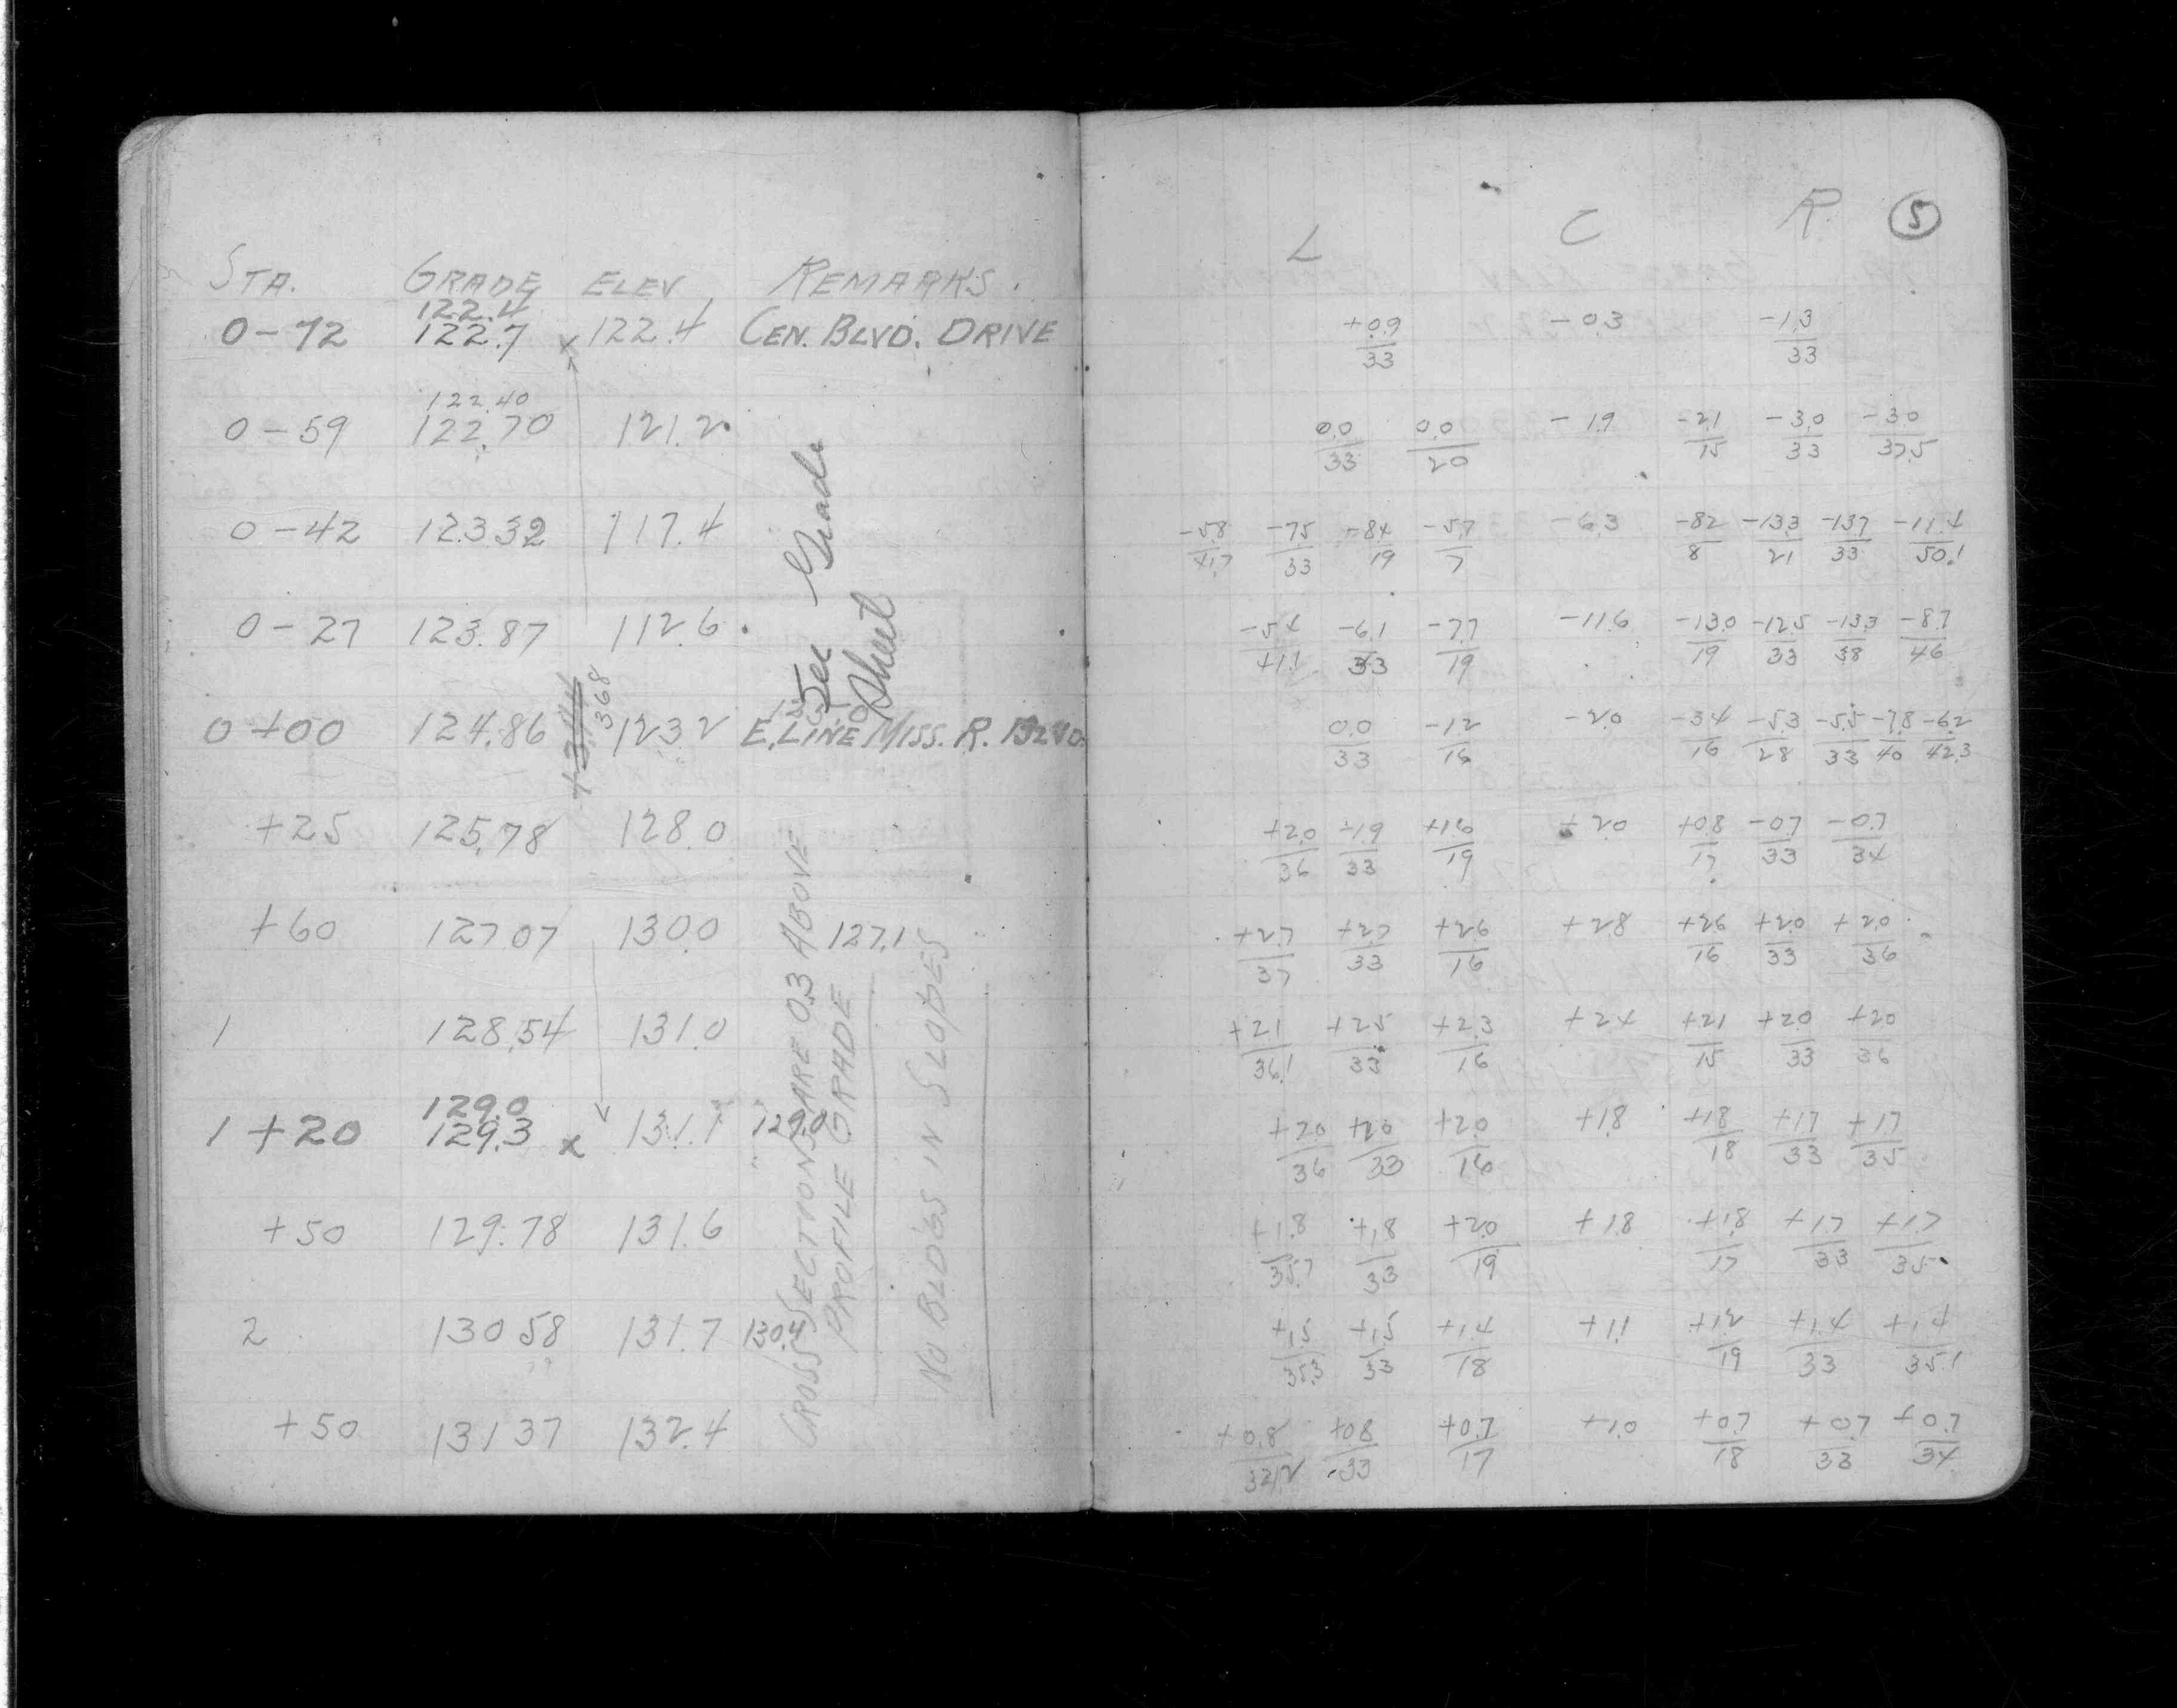 STA. GRADE ELEV REMARKS.
122.4
0-72 122.7 x 122.4 CEN. BLVD. DRIVE
122.40
0-59 122.70 121.2
0-42 123.32 117.4
0-27 123.87 112.6
See Grade
Sheet
+3.68
0+00 124.86 123.2 E. LINE MISS. R. BLVD.
+25 125.78 128.0
+60 127.07 130.0 127.1
1 128.54 131.0
129.0
1+20 129.3 x 131.1 129.0
+50 129.78 131.6
2 130.58 131.7 130.4
+50 131.37 132.4
CROSS SECTIONS ARE 0.3 ABOVE
PROFILE GRADE
NO BLDGS IN SLOPES
L C R 5
+0.9 -0.3 -1.3
33 33
0.0 0.0 -1.9 -2.1 -3.0 -3.0
33 20 15 33 37.5
-5.8 -7.5 -8.4 -5.7 -6.3 -8.2 -13.3 -13.7 -11.4
41.7 33 19 7 8 21 33 50.1
-5.4 -6.1 -7.7 -11.6 -13.0 -12.5 -13.3 -8.7
41.1 33 19 19 33 38 46
0.0 -1.2 -2.0 -3.4 -5.3 -5.5 -7.8 -6.2
33 16 16 28 33 40 42.3
+2.0 +1.9 +1.6 +2.0 +0.8 -0.7 -0.7
36 33 19 17 33 34
+2.7 +2.7 +2.6 +2.8 +2.6 +2.0 +2.0
37 33 16 16 33 36
+2.1 +2.5 +2.3 +2.4 +2.1 +2.0 +2.0
36.1 33 16 15 33 36
+2.0 +2.0 +2.0 +1.8 +1.8 +1.7 +1.7
36 33 16 18 33 35
+1.8 +1.8 +2.0 +1.8 +1.8 +1.7 +1.7
35.7 33 19 17 33 35
+1.5 +1.5 +1.4 +1.1 +1.2 +1.4 +1.4
35.3 33 18 19 33 35.1
+0.8 +0.8 +0.7 +1.0 +0.7 +0.7 +0.7
33 17 18 33 34